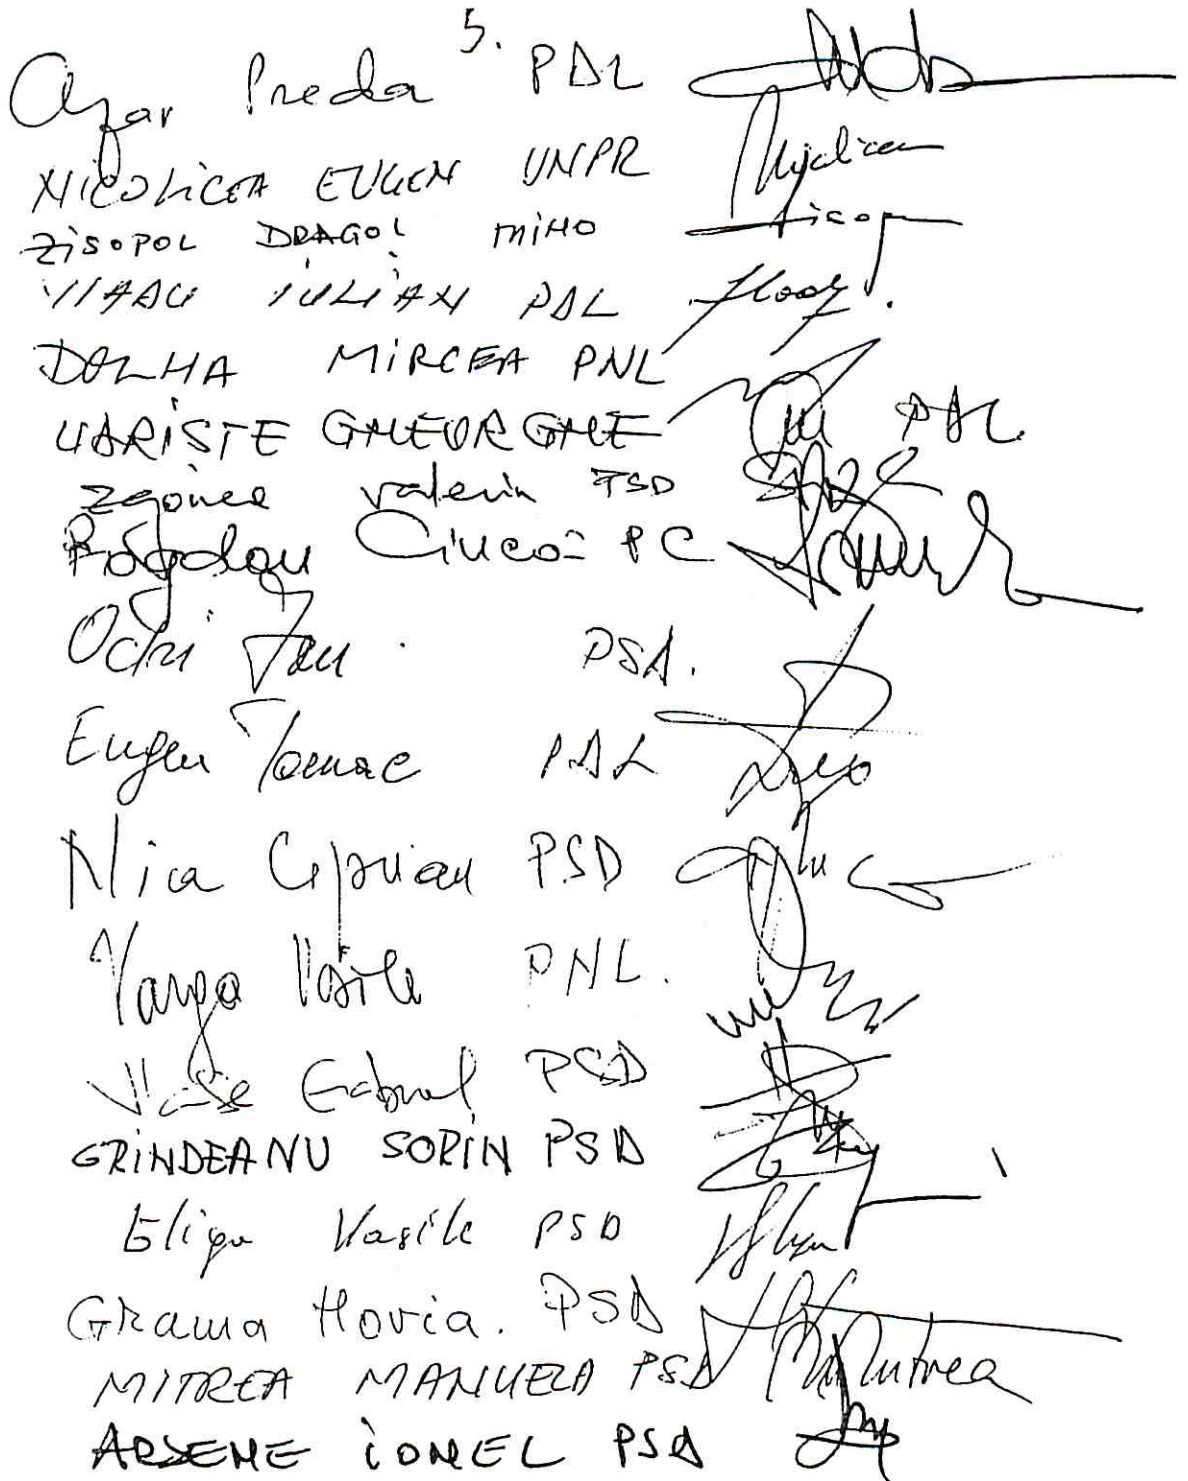 5.
Preda PDL
NICOLICEA EUGEN UNPR
ZISOPOL DRAGOȘ MINO
VLADU IULIAN PDL
DOLHA MIRCEA PNL
GHEORGHE PDL
Zgonea Valeriu PSD
Bogdan Ciucă PC
Ochi Ion PSD.
Eugen Tomac PDL
Nica Ciprian PSD
Varga Vasile PNL.
Vlase Gabriel PSD
GRINDEANU SORIN PSD
Gliga Vasile PSD
Grama Horia. PSD
MITREA MANUELA PSD Mitrea
ARSENE IONEL PSD